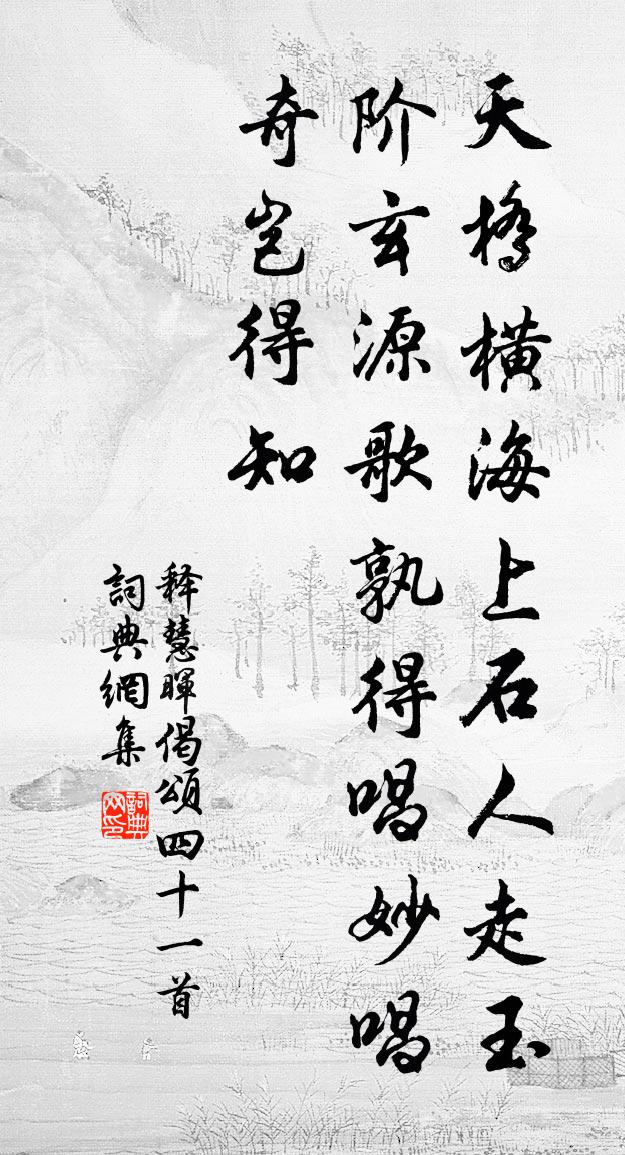 天桥橫海上石人走玉
阶玄源歌孰得唱妙唱
奇岂得知
释慧暉偈頌四十一首
詞典網集
詞典网印